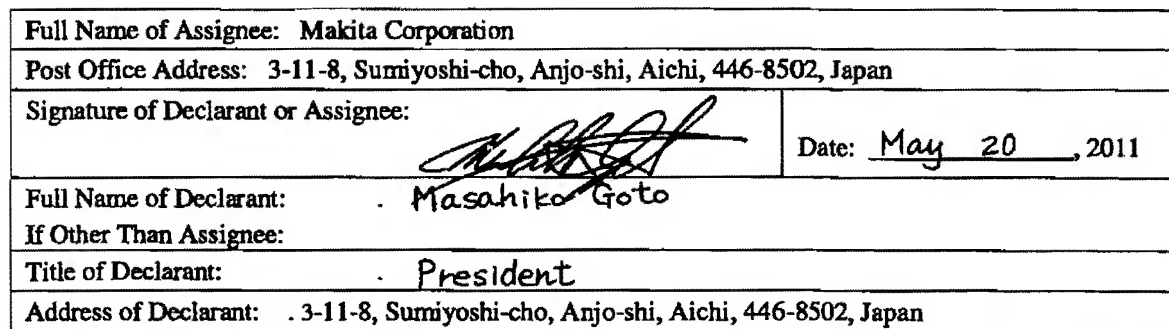 Full Name of Assignee: Makita Corporation
Post Office Address: 3-11-8, Sumiyoshi-cho, Anjo-shi, Aichi, 446-8502, Japan
Signature of Declarant or Assignee:
Date: May 20, 2011
Full Name of Declarant: . Masahiko Goto
If Other Than Assignee:
Title of Declarant: . President
Address of Declarant: . 3-11-8, Sumiyoshi-cho, Anjo-shi, Aichi, 446-8502, Japan